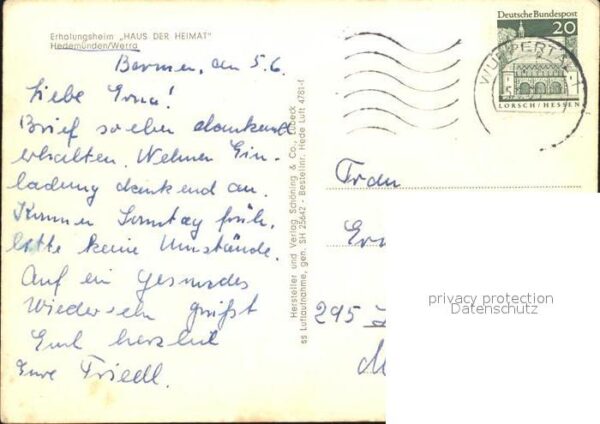 Erholungsheim „HAUS DER HEIMAT"
Hedemünden/Werra
Deutsche Bundespost
20
LORSCH/HESSEN
WUPPERTAL 1
Barmen, den 5.6.
Liebe Erna!
Brief soeben dankend
erhalten. Nehmen Ein-
ladung dankend an.
Kommen Sonntag früh,
bitte keine Umstände.
Auf ein gesundes
Wiedersehn grüßt
Euch herzlich
Eure Friedl.
Hersteller und Verlag Schöning & Co., Lübeck
ss Luftaufnahme, gen. SH 25642 - Bestellnr. Hede Luft 4781-f
Frau
Er
295
privacy protection
Datenschutz